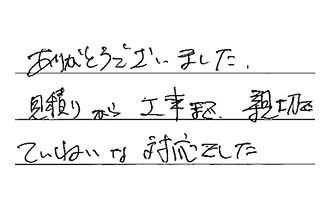 ありがとうございました.
見積りから工事まで、親切で
ていねいな対応でした